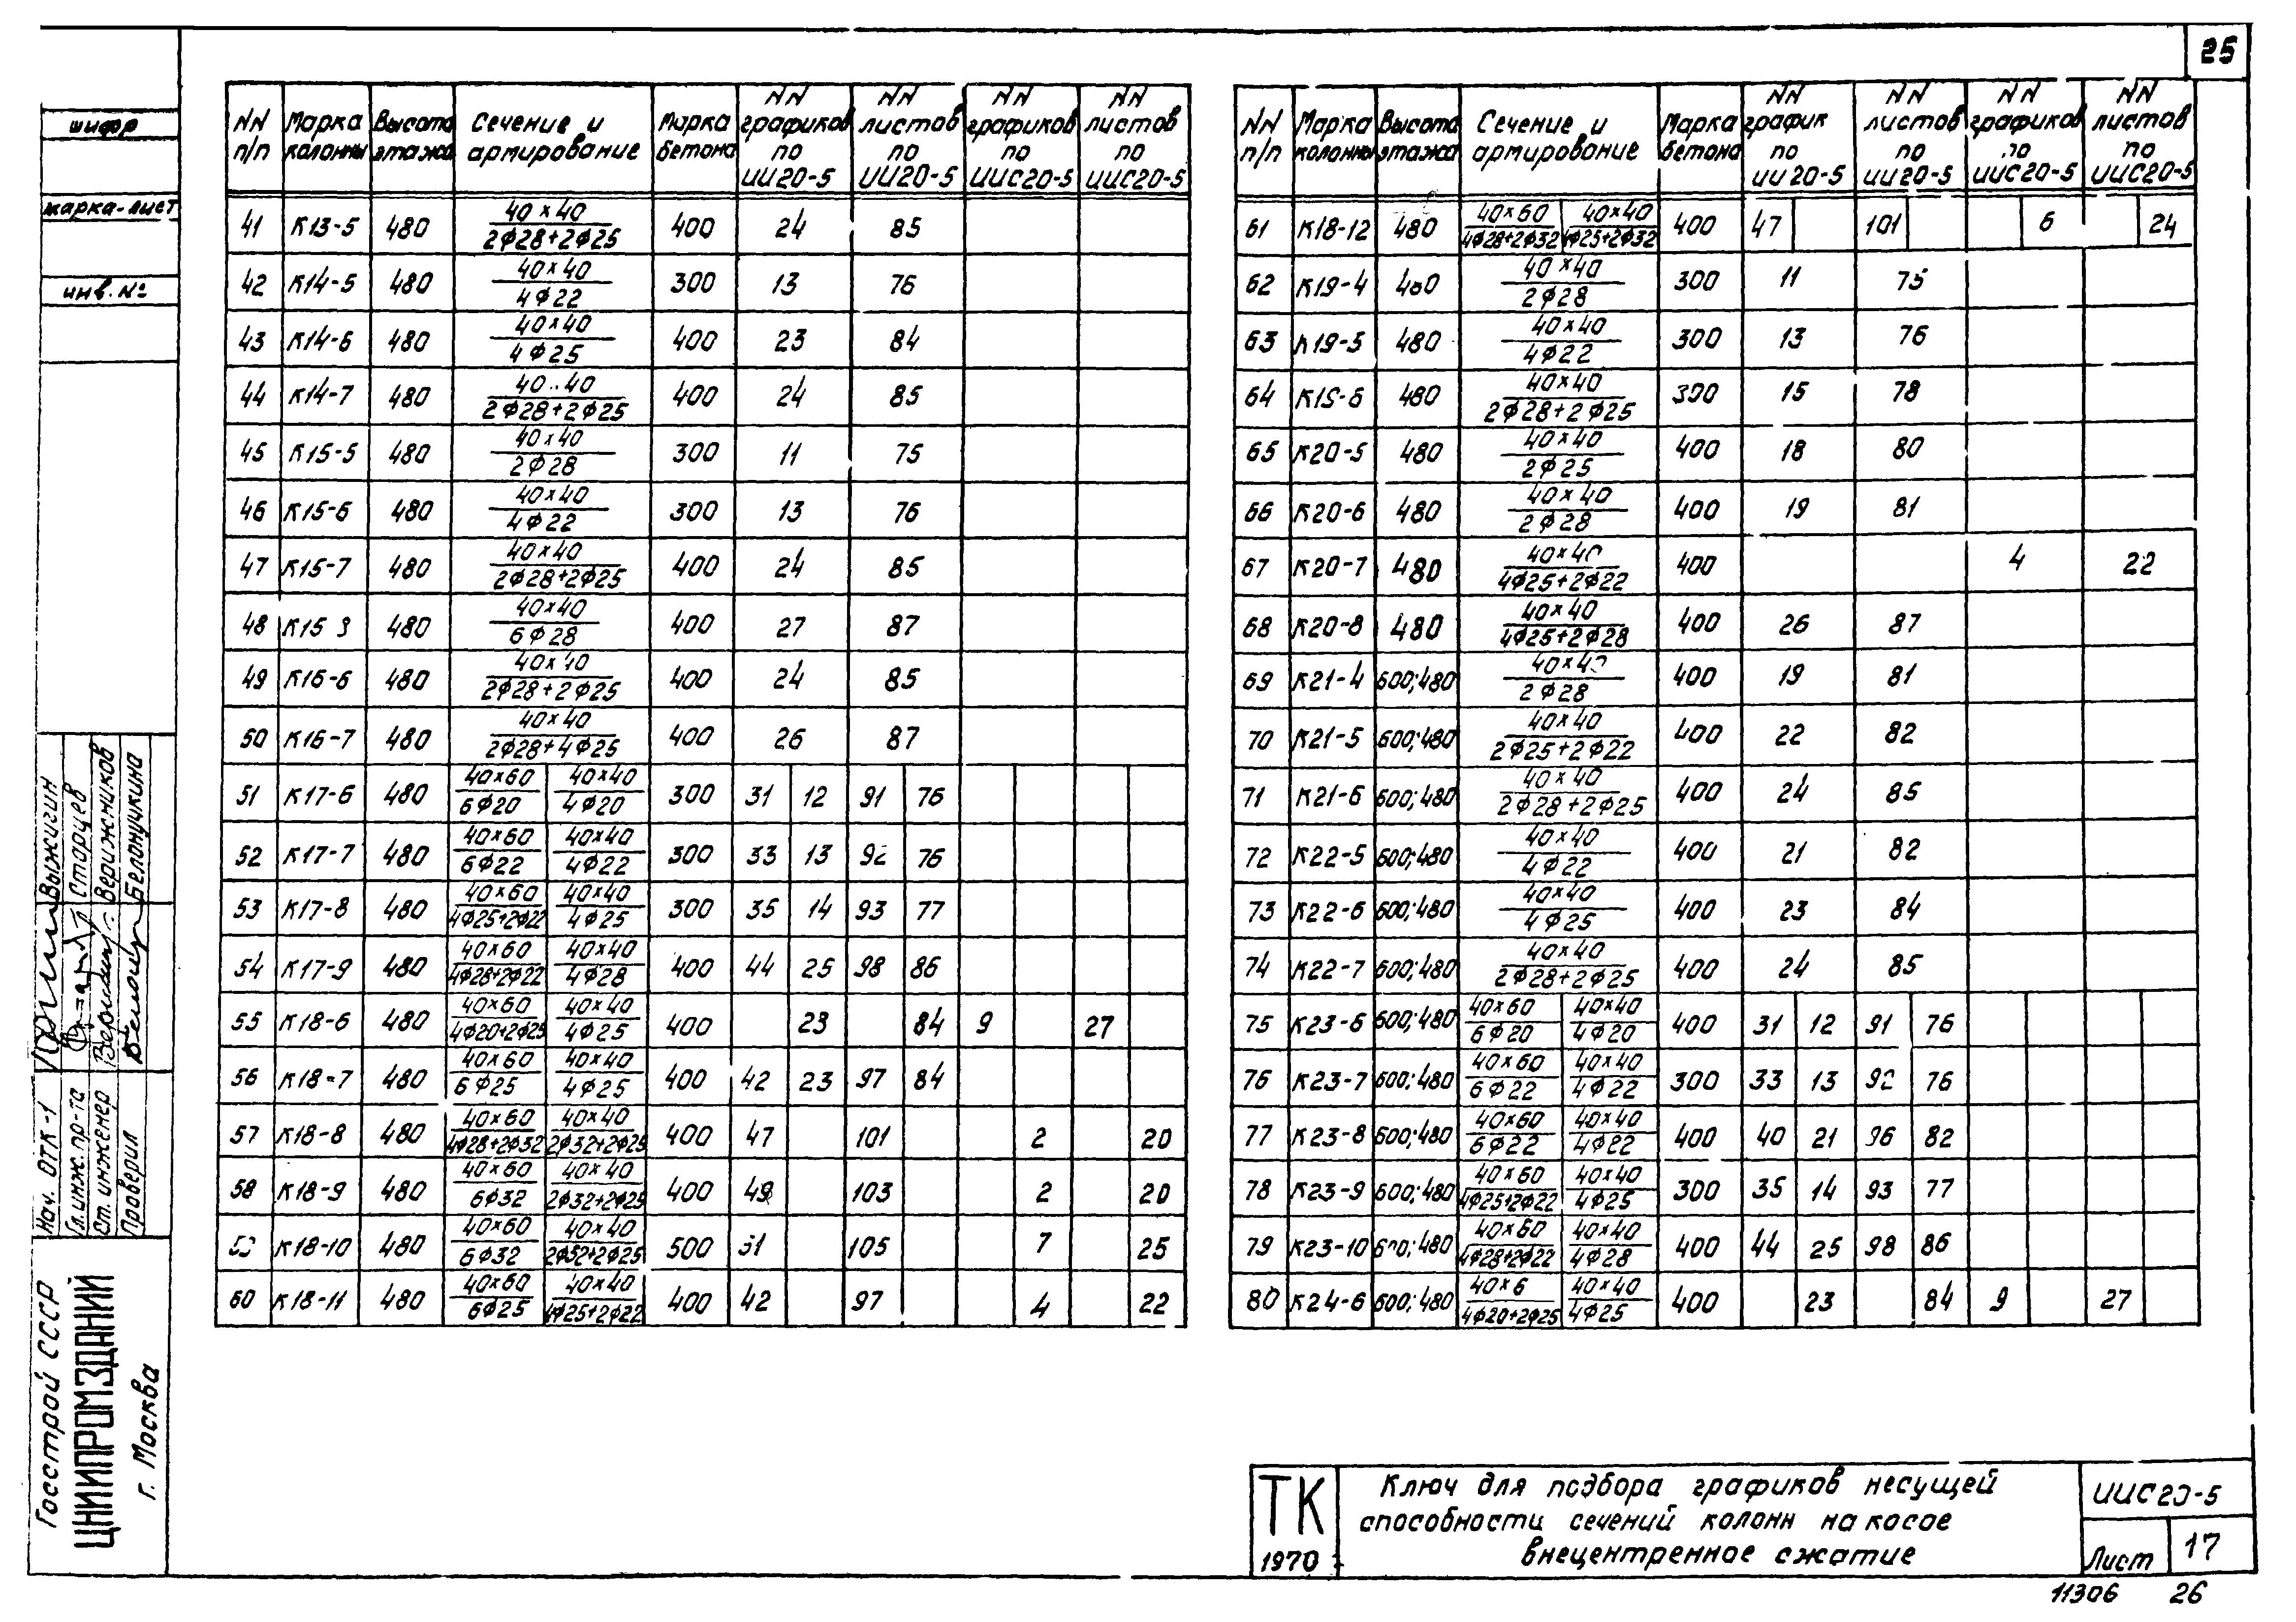 25
шифр
марка-лист
инв. №
NN п/п | Марка колонны | Высота этажа | Сечение и армирование | Марка бетона | NN графиков по ИИ20-5 | NN листов по ИИ20-5 | NN графиков по ИИС20-5 | NN листов по ИИС20-5
41 К13-5 480 40×40 / 2ф28+2ф25 400 24 85
42 К14-5 480 40×40 / 4ф22 300 13 76
43 К14-6 480 40×40 / 4ф25 400 23 84
44 К14-7 480 40 40 / 2ф28+2ф25 400 24 85
45 К15-5 480 40×40 / 2ф28 300 11 75
46 К15-6 480 40×40 / 4ф22 300 13 76
47 К15-7 480 40×40 / 2ф28+2ф25 400 24 85
48 К15 480 40×40 / 6ф28 400 27 87
49 К16-6 480 40×40 / 2ф28+2ф25 400 24 85
50 К16-7 480 40×40 / 2ф28+4ф25 400 26 87
51 К17-6 480 40×60 / 6ф20 40×40 / 4ф20 300 31 12 91 76
52 К17-7 480 40×60 / 6ф22 40×40 / 4ф22 300 33 13 92 76
53 К17-8 480 40×60 / 4ф25+2ф22 40×40 / 4ф25 300 35 14 93 77
54 К17-9 480 40×60 / 4ф28+2ф22 40×40 / 4ф28 400 44 25 98 86
55 К18-6 480 40×60 / 4ф20+2ф25 40×40 / 4ф25 400 23 84 9 27
56 К18-7 480 40×60 / 6ф25 40×40 / 4ф25 400 42 23 97 84
57 К18-8 480 40×60 / 4ф28+2ф32 40×40 / 2ф32+2ф25 400 47 101 2 20
58 К18-9 480 40×60 / 6ф32 40×40 / 2ф32+2ф25 400 49 103 2 20
К18-10 480 40×60 / 6ф32 40×40 / 2ф32+2ф25 500 51 105 7 25
60 К18-11 480 40×60 / 6ф25 40×40 / 4ф25+2ф22 400 42 97 4 22
NN п/п | Марка колонны | Высота этажа | Сечение и армирование | Марка бетона | NN график по ИИ20-5 | NN листов по ИИ20-5 | NN графиков по ИИС20-5 | NN листов по ИИС20-5
61 К18-12 480 40×60 / 4ф28+2ф32 40×40 / 4ф25+2ф32 400 47 101 6 24
62 К19-4 480 40×40 / 2ф28 300 11 75
63 К19-5 480 40×40 / 4ф22 300 13 76
64 К19-6 480 40×40 / 2ф28+2ф25 300 15 78
65 К20-5 480 40×40 / 2ф25 400 18 80
66 К20-6 480 40×40 / 2ф28 400 19 81
67 К20-7 480 40×40 / 4ф25+2ф22 400 4 22
68 К20-8 480 40×40 / 4ф25+2ф28 400 26 87
69 К21-4 600;480 40×40 / 2ф28 400 19 81
70 К21-5 600;480 40×40 / 2ф25+2ф22 400 22 82
71 К21-6 600;480 40×40 / 2ф28+2ф25 400 24 85
72 К22-5 600;480 40×40 / 4ф22 400 21 82
73 К22-6 600;480 40×40 / 4ф25 400 23 84
74 К22-7 600;480 40×40 / 2ф28+2ф25 400 24 85
75 К23-6 600;480 40×60 / 6ф20 40×40 / 4ф20 400 31 12 91 76
76 К23-7 600;480 40×60 / 6ф22 40×40 / 4ф22 300 33 13 92 76
77 К23-8 600;480 40×60 / 6ф22 40×40 / 4ф22 400 40 21 96 82
78 К23-9 600;480 40×60 / 4ф25+2ф22 40×40 / 4ф25 300 35 14 93 77
79 К23-10 600;480 40×60 / 4ф28+2ф22 40×40 / 4ф28 400 44 25 98 86
80 К24-6 600;480 40×6 / 4ф20+2ф25 40×40 / 4ф25 400 23 84 9 27
Нач. ОТК-1 Выжигин
Гл.инж.пр-та Старцев
Ст. инженер Верижников
Проверил Белолучкина
Госстрой СССР
ЦНИИПРОМЗДАНИЙ
г. Москва
ТК
1970 г
Ключ для подбора графиков несущей
способности сечений колонн на косое
внецентренное сжатие
ИИС20-5
Лист 17
11306 26